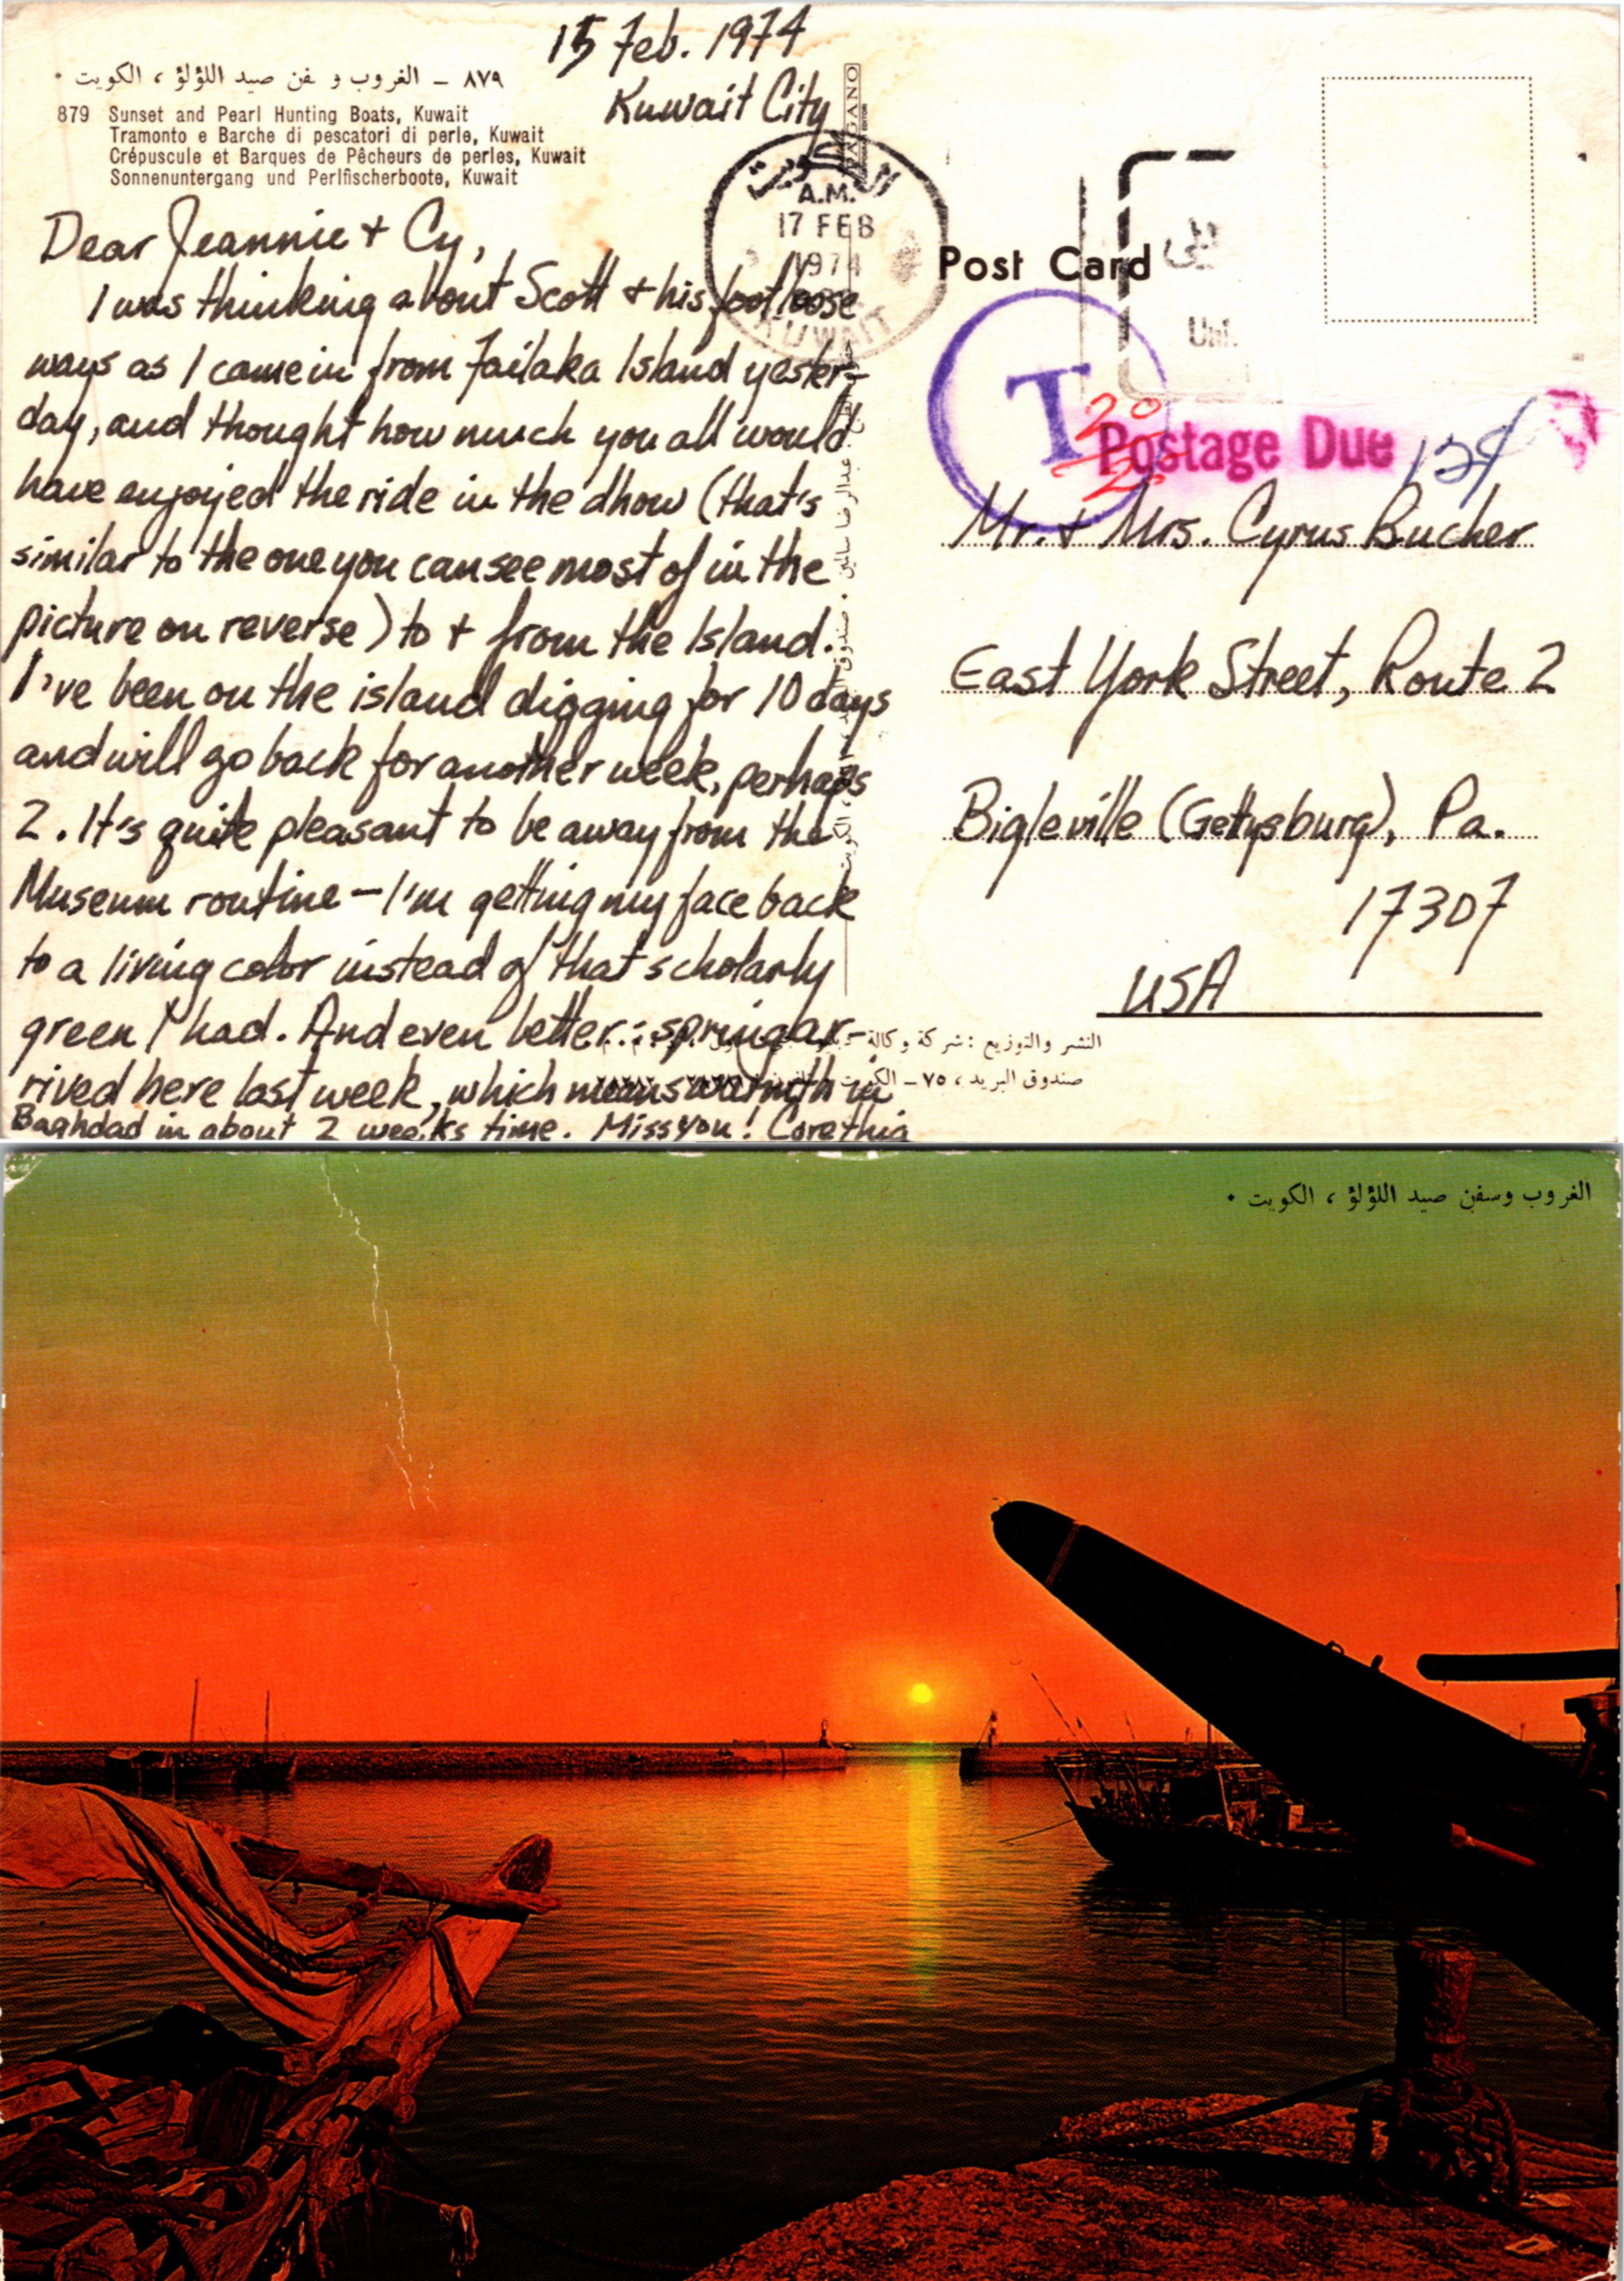 15 Feb. 1974
Kuwait City
٨٧٩ – الغروب و سفن صيد اللؤلؤ ، الكويت ٠
879 Sunset and Pearl Hunting Boats, Kuwait
Tramonto e Barche di pescatori di perle, Kuwait
Crépuscule et Barques de Pêcheurs de perles, Kuwait
Sonnenuntergang und Perlfischerboote, Kuwait
Dear Jeannie + Cy,
I was thinking about Scott + his footloose
ways as I came in from Failaka Island yester-
day, and thought how much you all would
have enjoyed the ride in the dhow (that's
similar to the one you can see most of in the
picture on reverse) to + from the Island.
I've been on the island digging for 10 days
and will go back for another week, perhaps
2. It's quite pleasant to be away from the
Museum routine – I'm getting my face back
to a living color instead of that scholarly
green I had. And even better: spring ar-
rived here last week, which means warmth in
Baghdad in about 2 weeks time. Miss you! Carethia
الكويت
A.M.
17 FEB
1974
KUWAIT
Post Card
T
20
Postage Due 12¢
Mr. + Mrs. Cyrus Bucher
East York Street, Route 2
Bigleville (Gettysburg), Pa.
17307
USA
النشر والتوزيع : شركة وكالة
صندوق البريد ، ٧٥ – الكويت
الغروب وسفن صيد اللؤلؤ ، الكويت ٠